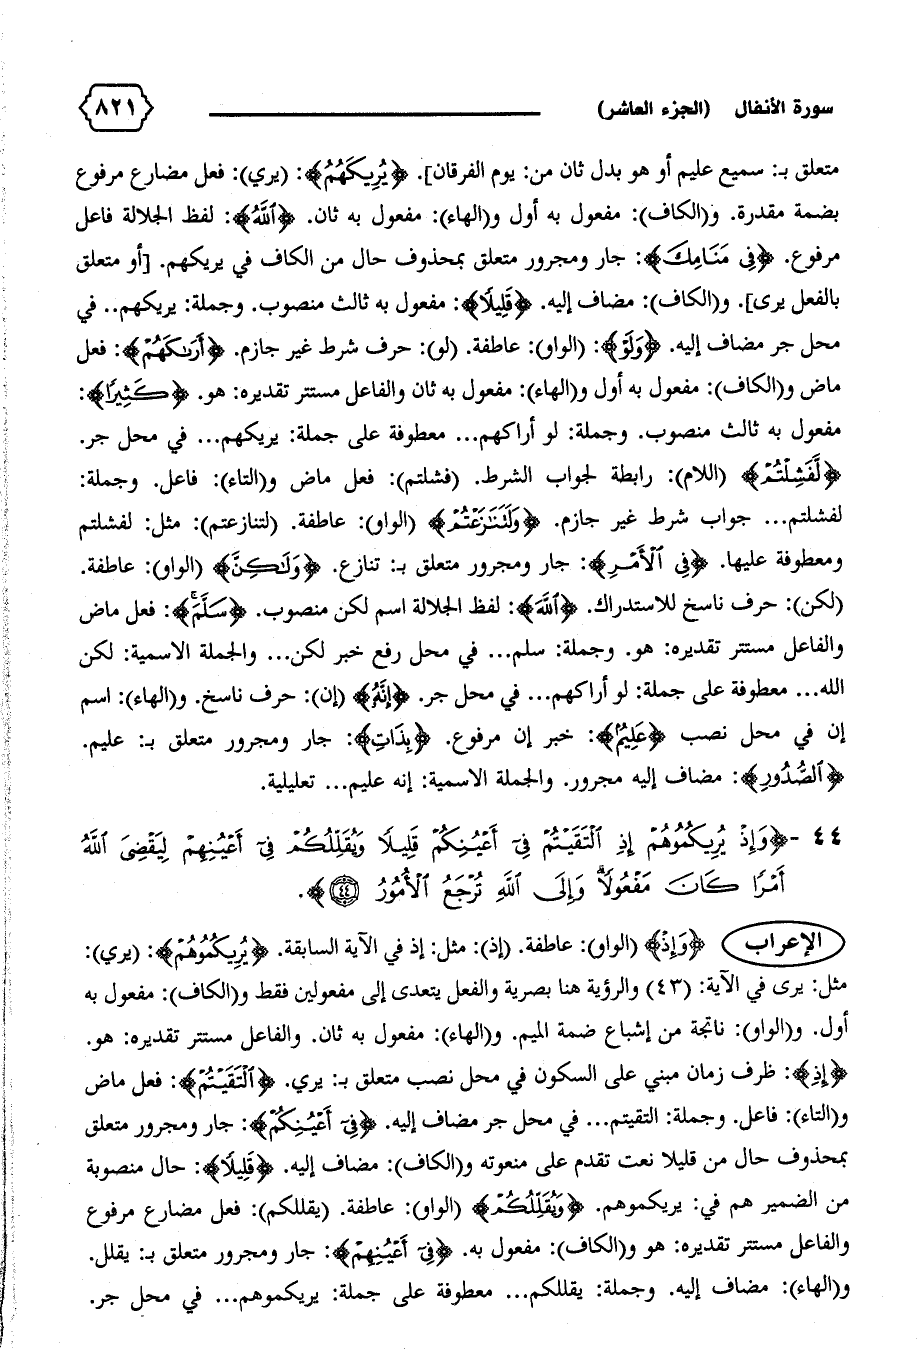 سورة الأنفال (الجزء العاشر) ٨٢١
متعلق بـ: سميع عليم أو هو بدل ثان من: يوم الفرقان]. ﴿يُرِيكَهُمُ﴾: (يري): فعل مضارع مرفوع
بضمة مقدرة. و(الكاف): مفعول به أول و(الهاء): مفعول به ثان. ﴿ٱللَّهُ﴾: لفظ الجلالة فاعل
مرفوع. ﴿فِي مَنَامِكَ﴾: جار ومجرور متعلق بمحذوف حال من الكاف في يريكهم. [أو متعلق
بالفعل يرى]. و(الكاف): مضاف إليه. ﴿قَلِيلًا﴾: مفعول به ثالث منصوب. وجملة: يريكهم.. في
محل جر مضاف إليه. ﴿وَلَوْ﴾: (الواو): عاطفة. (لو): حرف شرط غير جازم. ﴿أَرَىٰكَهُمْ﴾: فعل
ماض و(الكاف): مفعول به أول و(الهاء): مفعول به ثان والفاعل مستتر تقديره: هو. ﴿كَثِيرًا﴾:
مفعول به ثالث منصوب. وجملة: لو أراكهم... معطوفة على جملة: يريكهم... في محل جر.
﴿لَّفَشِلْتُمْ﴾ (اللام): رابطة لجواب الشرط. (فشلتم): فعل ماض و(التاء): فاعل. وجملة:
لفشلتم... جواب شرط غير جازم. ﴿وَلَتَنَٰزَعْتُمْ﴾ (الواو): عاطفة. (لتنازعتم): مثل: لفشلتم
ومعطوفة عليها. ﴿فِي ٱلْأَمْرِ﴾: جار ومجرور متعلق بـ: تنازع. ﴿وَلَٰكِنَّ﴾ (الواو): عاطفة.
(لكن): حرف ناسخ للاستدراك. ﴿ٱللَّهَ﴾: لفظ الجلالة اسم لكن منصوب. ﴿سَلَّمَۚ﴾: فعل ماض
والفاعل مستتر تقديره: هو. وجملة: سلم... في محل رفع خبر لكن... والجملة الاسمية: لكن
الله... معطوفة على جملة: لو أراكهم... في محل جر. ﴿إِنَّهُۥ﴾ (إن): حرف ناسخ. و(الهاء): اسم
إن في محل نصب ﴿عَلِيمٌۢ﴾: خبر إن مرفوع. ﴿بِذَاتِ﴾: جار ومجرور متعلق بـ: عليم.
﴿ٱلصُّدُورِ﴾: مضاف إليه مجرور. والجملة الاسمية: إنه عليم... تعليلية.
٤٤ -﴿وَإِذْ يُرِيكُمُوهُمْ إِذِ ٱلْتَقَيْتُمْ فِيٓ أَعْيُنِكُمْ قَلِيلًا وَيُقَلِّلُكُمْ فِيٓ أَعْيُنِهِمْ لِيَقْضِيَ ٱللَّهُ
أَمْرًا كَانَ مَفْعُولًاۗ وَإِلَى ٱللَّهِ تُرْجَعُ ٱلْأُمُورُ ۝٤٤﴾.
الإعراب ﴿وَإِذْ﴾ (الواو): عاطفة. (إذ): مثل: إذ في الآية السابقة. ﴿يُرِيكُمُوهُمْ﴾: (يري):
مثل: يرى في الآية: (٤٣) والرؤية هنا بصرية والفعل يتعدى إلى مفعولين فقط و(الكاف): مفعول به
أول. و(الواو): ناتجة من إشباع ضمة الميم. و(الهاء): مفعول به ثان. والفاعل مستتر تقديره: هو.
﴿إِذِ﴾: ظرف زمان مبني على السكون في محل نصب متعلق بـ: يري. ﴿ٱلْتَقَيْتُمْ﴾: فعل ماض
و(التاء): فاعل. وجملة: التقيتم... في محل جر مضاف إليه. ﴿فِيٓ أَعْيُنِكُمْ﴾: جار ومجرور متعلق
بمحذوف حال من قليلا نعت تقدم على منعوته و(الكاف): مضاف إليه. ﴿قَلِيلًا﴾: حال منصوبة
من الضمير هم في: يريكموهم. ﴿وَيُقَلِّلُكُمْ﴾ (الواو): عاطفة. (يقللكم): فعل مضارع مرفوع
والفاعل مستتر تقديره: هو و(الكاف): مفعول به. ﴿فِيٓ أَعْيُنِهِمْ﴾: جار ومجرور متعلق بـ: يقلل.
و(الهاء): مضاف إليه. وجملة: يقللكم... معطوفة على جملة: يريكموهم... في محل جر.